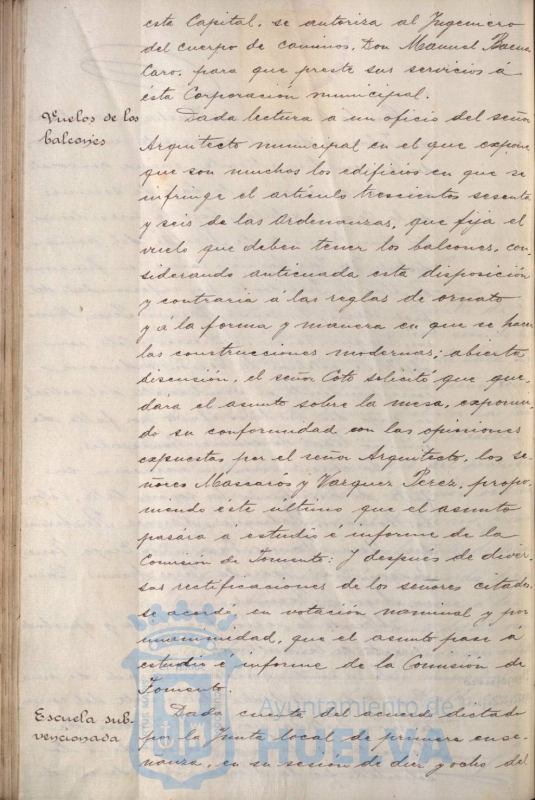 esta Capital, se autoriza al Ingeniero
del cuerpo de caminos, Don Manuel Baena
Caro, para que preste sus servicios á
ésta Corporación municipal.
Vuelos de los
balcones
Dada lectura á un oficio del señor
Arquitecto municipal en el que expone
que son muchos los edificios en que se
infringe el artículo trescientos sesenta
y seis de las Ordenanzas, que fija el
vuelo que deben tener los balcones, con-
siderando anticuada esta disposición
y contraria á las reglas de ornato
y á la forma y manera en que se hacen
las construcciones modernas; abierta
discusión, el señor Coto solicitó que que-
dara el asunto sobre la mesa, exponien-
do su conformidad con las opiniones
expuestas por el señor Arquitecto, los se-
ñores Massarós y Vazquez Perez, propo-
niendo éste último que el asunto
pasara á estudio é informe de la
Comisión de Fomento: Y después de diver-
sas rectificaciones de los señores citados
se acordó, en votación nominal y por
unanimidad, que el asunto pase á
estudio é informe de la Comisión de
Fomento.
Escuela sub-
vencionada
Dada cuenta del acuerdo dictado
por la Junta local de primera ense-
ñanza, en su sesión de diez y ocho del
Ayuntamiento de
HUELVA